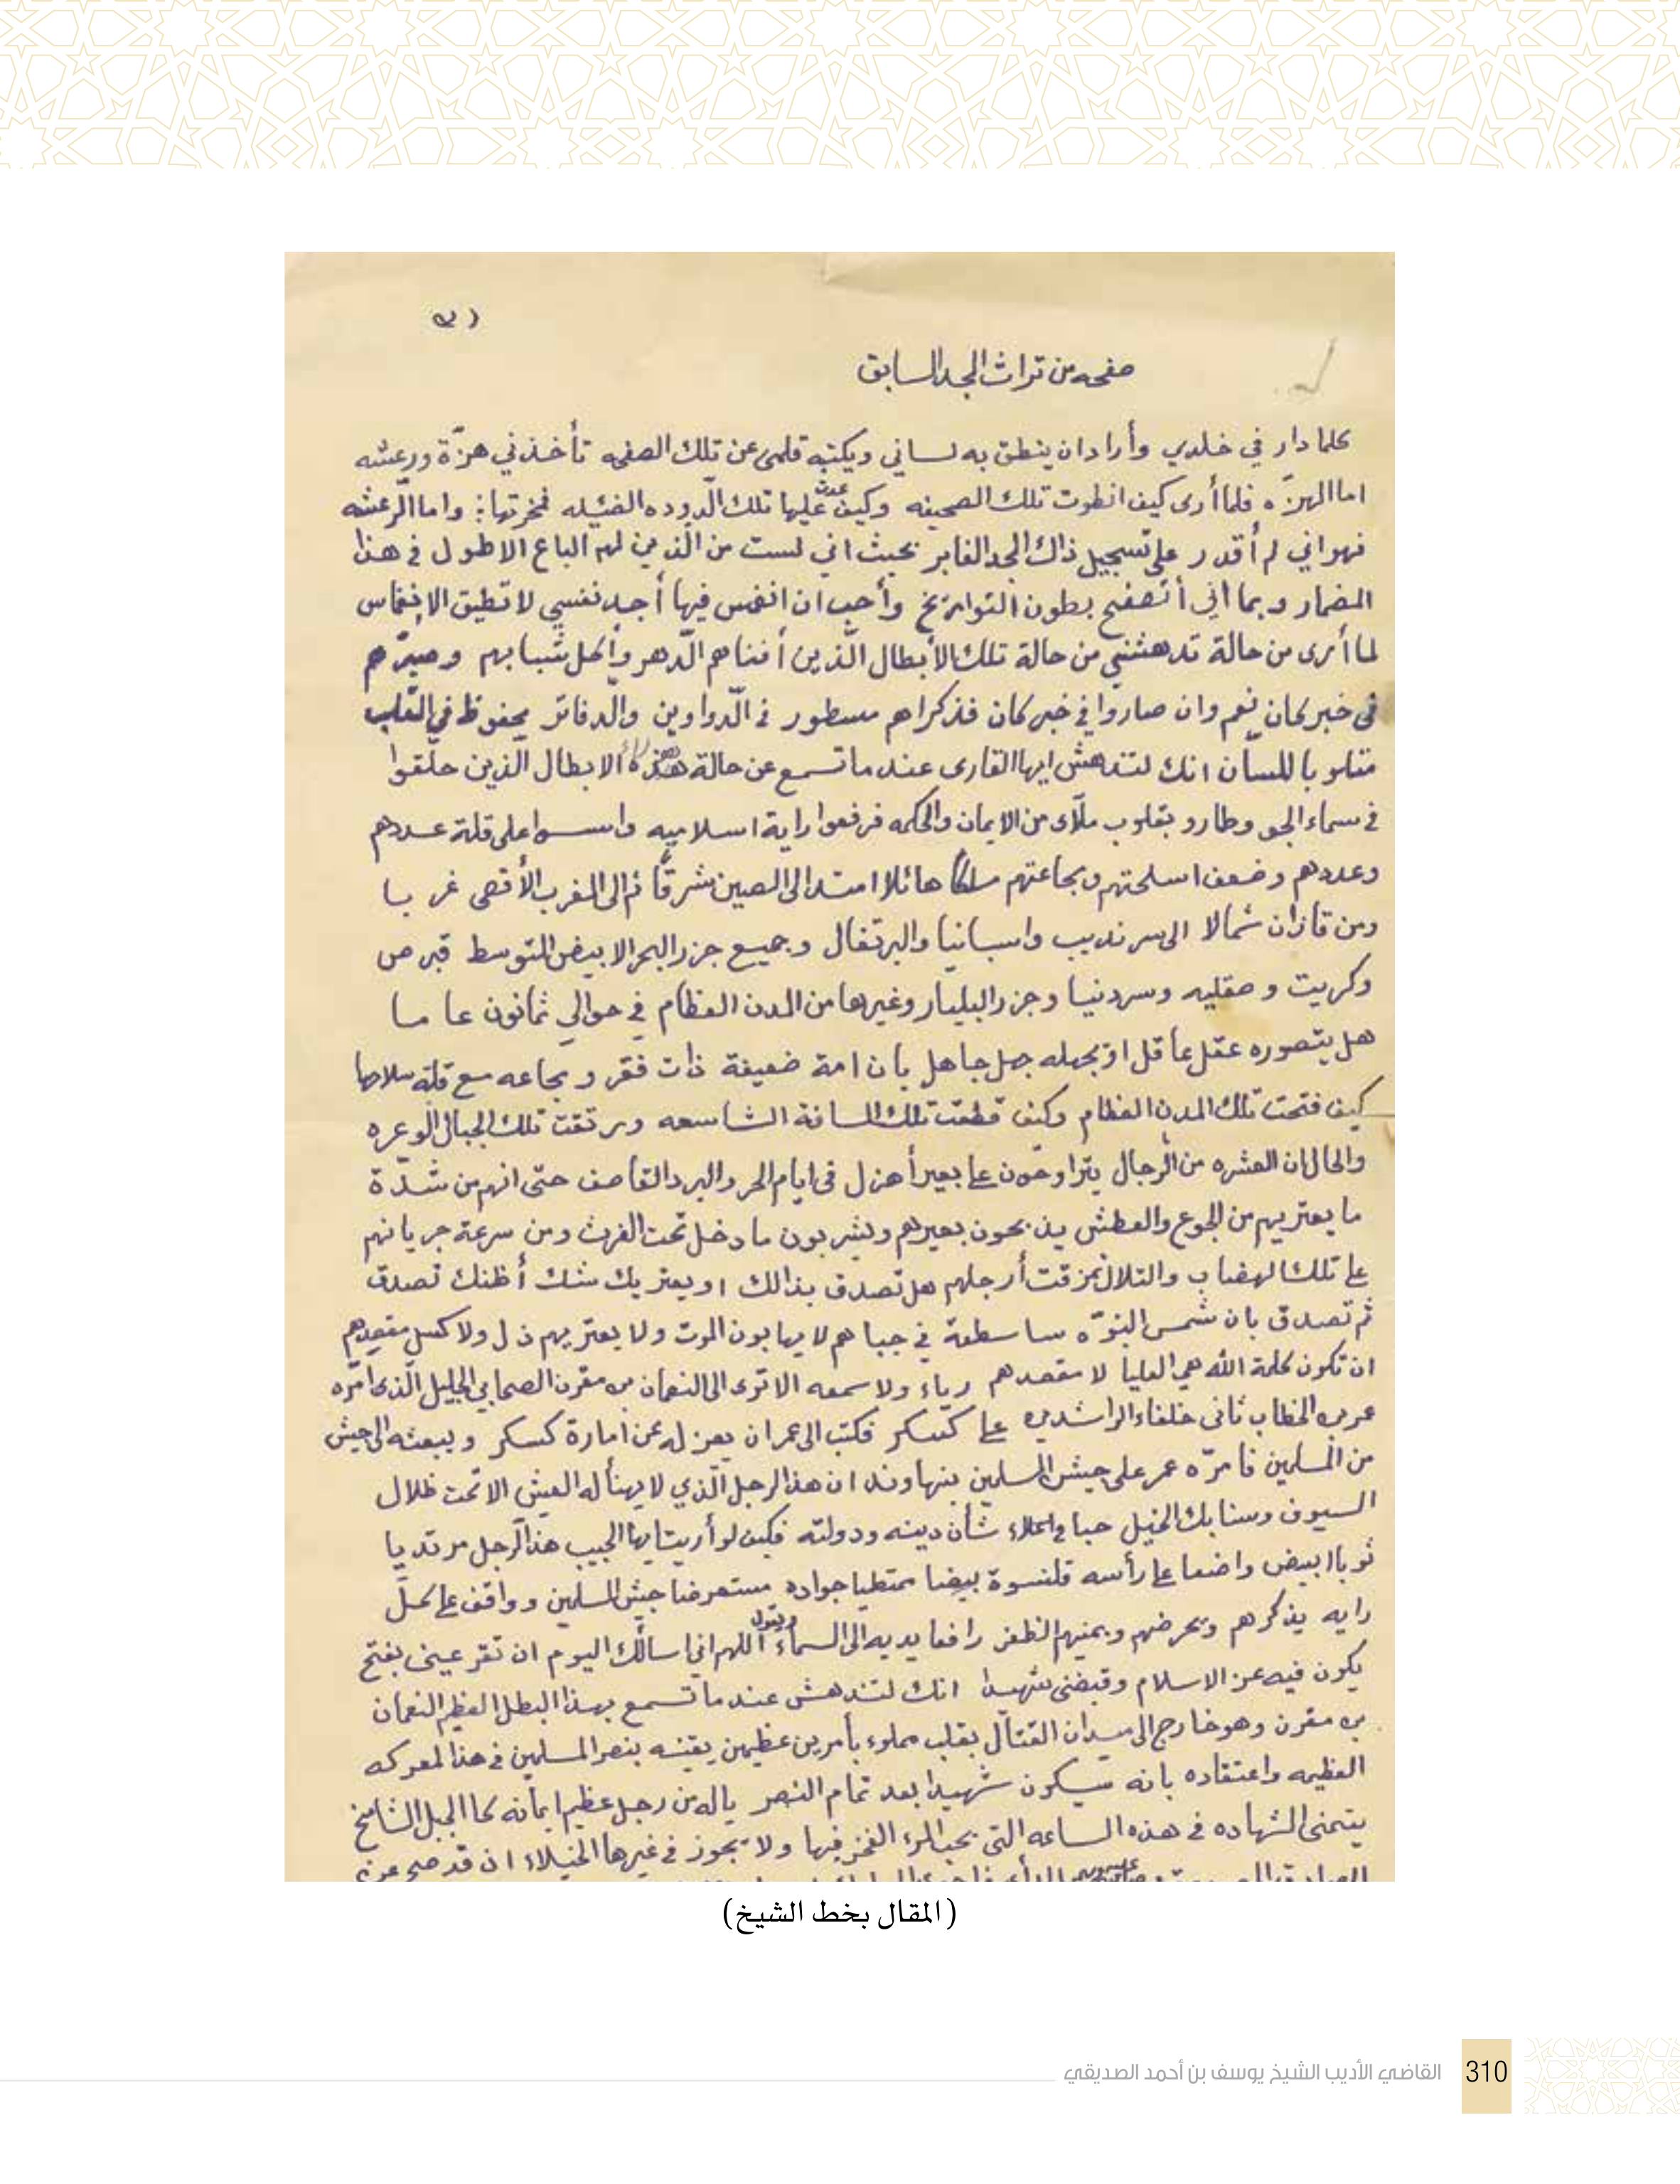 صفحه من تراث المجد السابق
كلما دار في خلدي وأراد ان ينطق به لساني ويكتبه قلمى عن تلك الصفحه تأخذني هزّة ورعشه
اما الهزّه فلما أرى كيف انطوت تلك الصحيفه وكيف عدت عليها تلك الدوده الضئيله فنخرتها: واما الرّعشه
فهو اني لم أقدر على تسجيل ذاك المجد الغابر بحيث اني لست من الذين لهم الباع الاطول في هذا
المضمار وبما أني أتصفح بطون التواريخ وأحب ان انغمس فيها أجد نفسي لا تطيق الإنغماس
لما أرى من حالة تدهشني من حالة تلك الأبطال الّذين أفناهم الّدهر وأكل شبابهم وصيرّهم
فى خبر كان نعم وان صاروا في خبر كان فذكراهم مسطور في الّدواوين والّدفاتر محفوظ في القلب
متلو باللسان انك لتندهش ايها القارى عندما تسمع عن حالة الابطال الّذين حلّقوا
في سماء الجو وطارو بقلوب ملآى من الايمان والحكمه فرفعوا راية اسلاميه واسسوا على قلة عددهم
وعددهم وضعف اسلحتهم ومجاعتهم ملكاً هائلا امتد الى الصين شرقًا ثم الى المغرب الأقصى غربا
ومن قازان شمالا الى سرنديب واسبانيا والبرتغال وجميع جزر البحر الابيض المتوسط قبرص
وكريت وصقليه وسردنيا وجزر البليار وغيرها من المدن العظام في حوالي ثمانون عاما
هل يتصوره عقل عاقل او يجهله جهل جاهل بان امة ضعيفة ذات فقر ومجاعه مع قلة سلاحها
كيف فتحت تلك المدن العظام وكيف قطعت تلك المسافة الشاسعه ورتقت تلك الجبال الوعره
والحال ان العشره من الّرجال يتراوحون على بعير أهزل في ايام الحر والبرد القاصف حتّى انهم من شدّة
ما يعتريهم من الجوع والعطش يذبحون بعيرهم ويشربون ما دخل تحت الفرث ومن سرعة جريانهم
على تلك الهضاب والتلال تمزقت أرجلهم هل تصدق بذالك او يعتريك شك أظنك تصدق
ثم تصدق بان شمس النبوّه ساطعة في جباهم لا يهابون الموت ولا يعتريهم ذل ولا كسل مقصدهم
ان تكون كلمة الله هي العليا لا مقصدهم رياء ولا سمعه الا ترى الى النعمان بن مقرن الصحابي الجليل الّذى امّره
عمر بن الخطاب ثانى خلفاء الراشدين على كسكر فكتب الى عمر ان يعزله عن امارة كسكر ويبعثه الى جيش
من المسلمين فامرّه عمر على جيش المسلمين بنهاوند ان هذا الرجل الّذي لا يهنأ له العيش الا تحت ظلال
السيوف وسنابك الخيل حبا في اعلاء شأن دينه ودولته فكيف لو أريت ايها الحبيب هذا الّرجل مرتديا
ثوبا ابيض واضعا على رأسه قلنسوة بيضا ممتطيا جواده مستعرضا جيش المسلمين وواقف على كلّ
رايه يذكرهم ويحرضهم ويمنيهم الظفر رافعا يديه الى السماء ويقول اللهم اني اسالك اليوم ان تقر عينى بفتح
يكون فيه عز الاسلام وقبضنى شهيدا انك لتندهش عندما تسمع بهذا البطل العظيم النعمان
بن مقرن وهو خارج الى ميدان القتال بقلب مملوء بأمرين عظيمين يقينه بنصر المسلمين في هذا المعركه
العظيمه واعتقاده بانه سيكون شهيدا بعد تمام النصر ياله من رجل عظيم ايمانه كما الجبل الشامخ
يتمنى الشهاده في هذه الساعه التى يحب المرء الفخز فيها ولا يجوز في غيرها الخيلاء ان قد صح عزم
(المقال بخط الشيخ)
القاضي الأديب الشيخ يوسف بن أحمد الصديقي
310